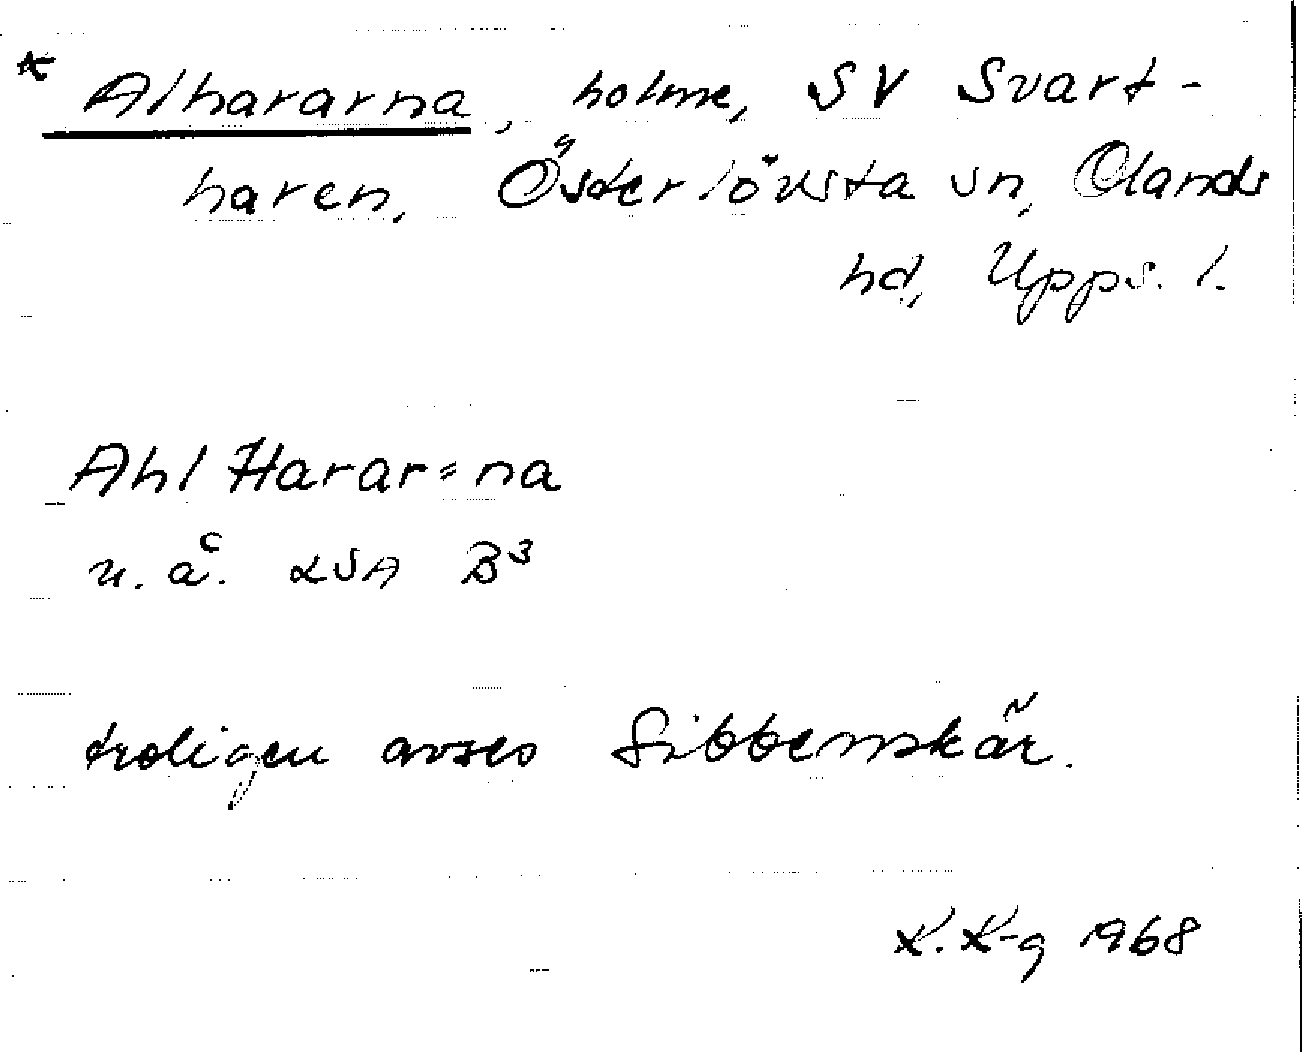 * Alhararna, holme, SV Svart-
haren, Österlövsta sn, Olands
hd, Upps. l.
Ahl Harar=na
u. å. LSA B³
troligen avses Sibbenskär.
K. K-g 1968